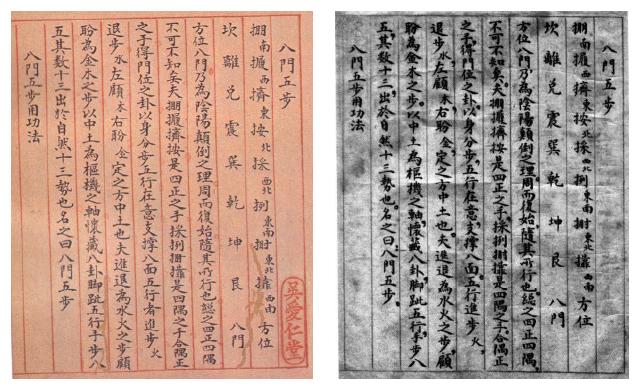 八門五步
掤南 西擠東按北採西北挒東南 東北 西南方位
坎離兌震巽乾坤艮八門
方位八門乃為陰陽顛倒之理周而復始隨其所行也總之四正四隅
不可不知矣夫掤 擠按是四正之手採挒 是四隅之手合隅正
之手得門位之卦以身分步五行在意支撐八面五行者進步火
退步水左顧木右盼金定之方中土也夫進退為水火之步顧
盼為金木之步以中土為樞機之軸懷藏八卦脚跐五行手步八
五其数十三出於自然十三勢也名之曰八門五步
八門五步用功法
吳愛仁堂
八門五步
掤南 西擠東按北採西北挒東南 東北 西南方位
坎離兌震巽乾坤艮八門
方位八門、乃為陰陽顛倒之理、周而復始、隨其所行也、總之四正四隅、
不可不知矣、夫掤 擠按是四正之手、採挒 是四隅之手、合隅正
之手、得門位之卦、以身分步、五行在意、支撐八面。五行、進步火、
退步水、左顧木、右盼金、定之方中土也。夫進退為水火之步、顧
盼為金木之步。以中土為樞機之軸、懷藏八卦、脚跐五行、手步八
五、其数十三、出於自然、十三勢也。名之曰、八門五步。
八門五步用功法